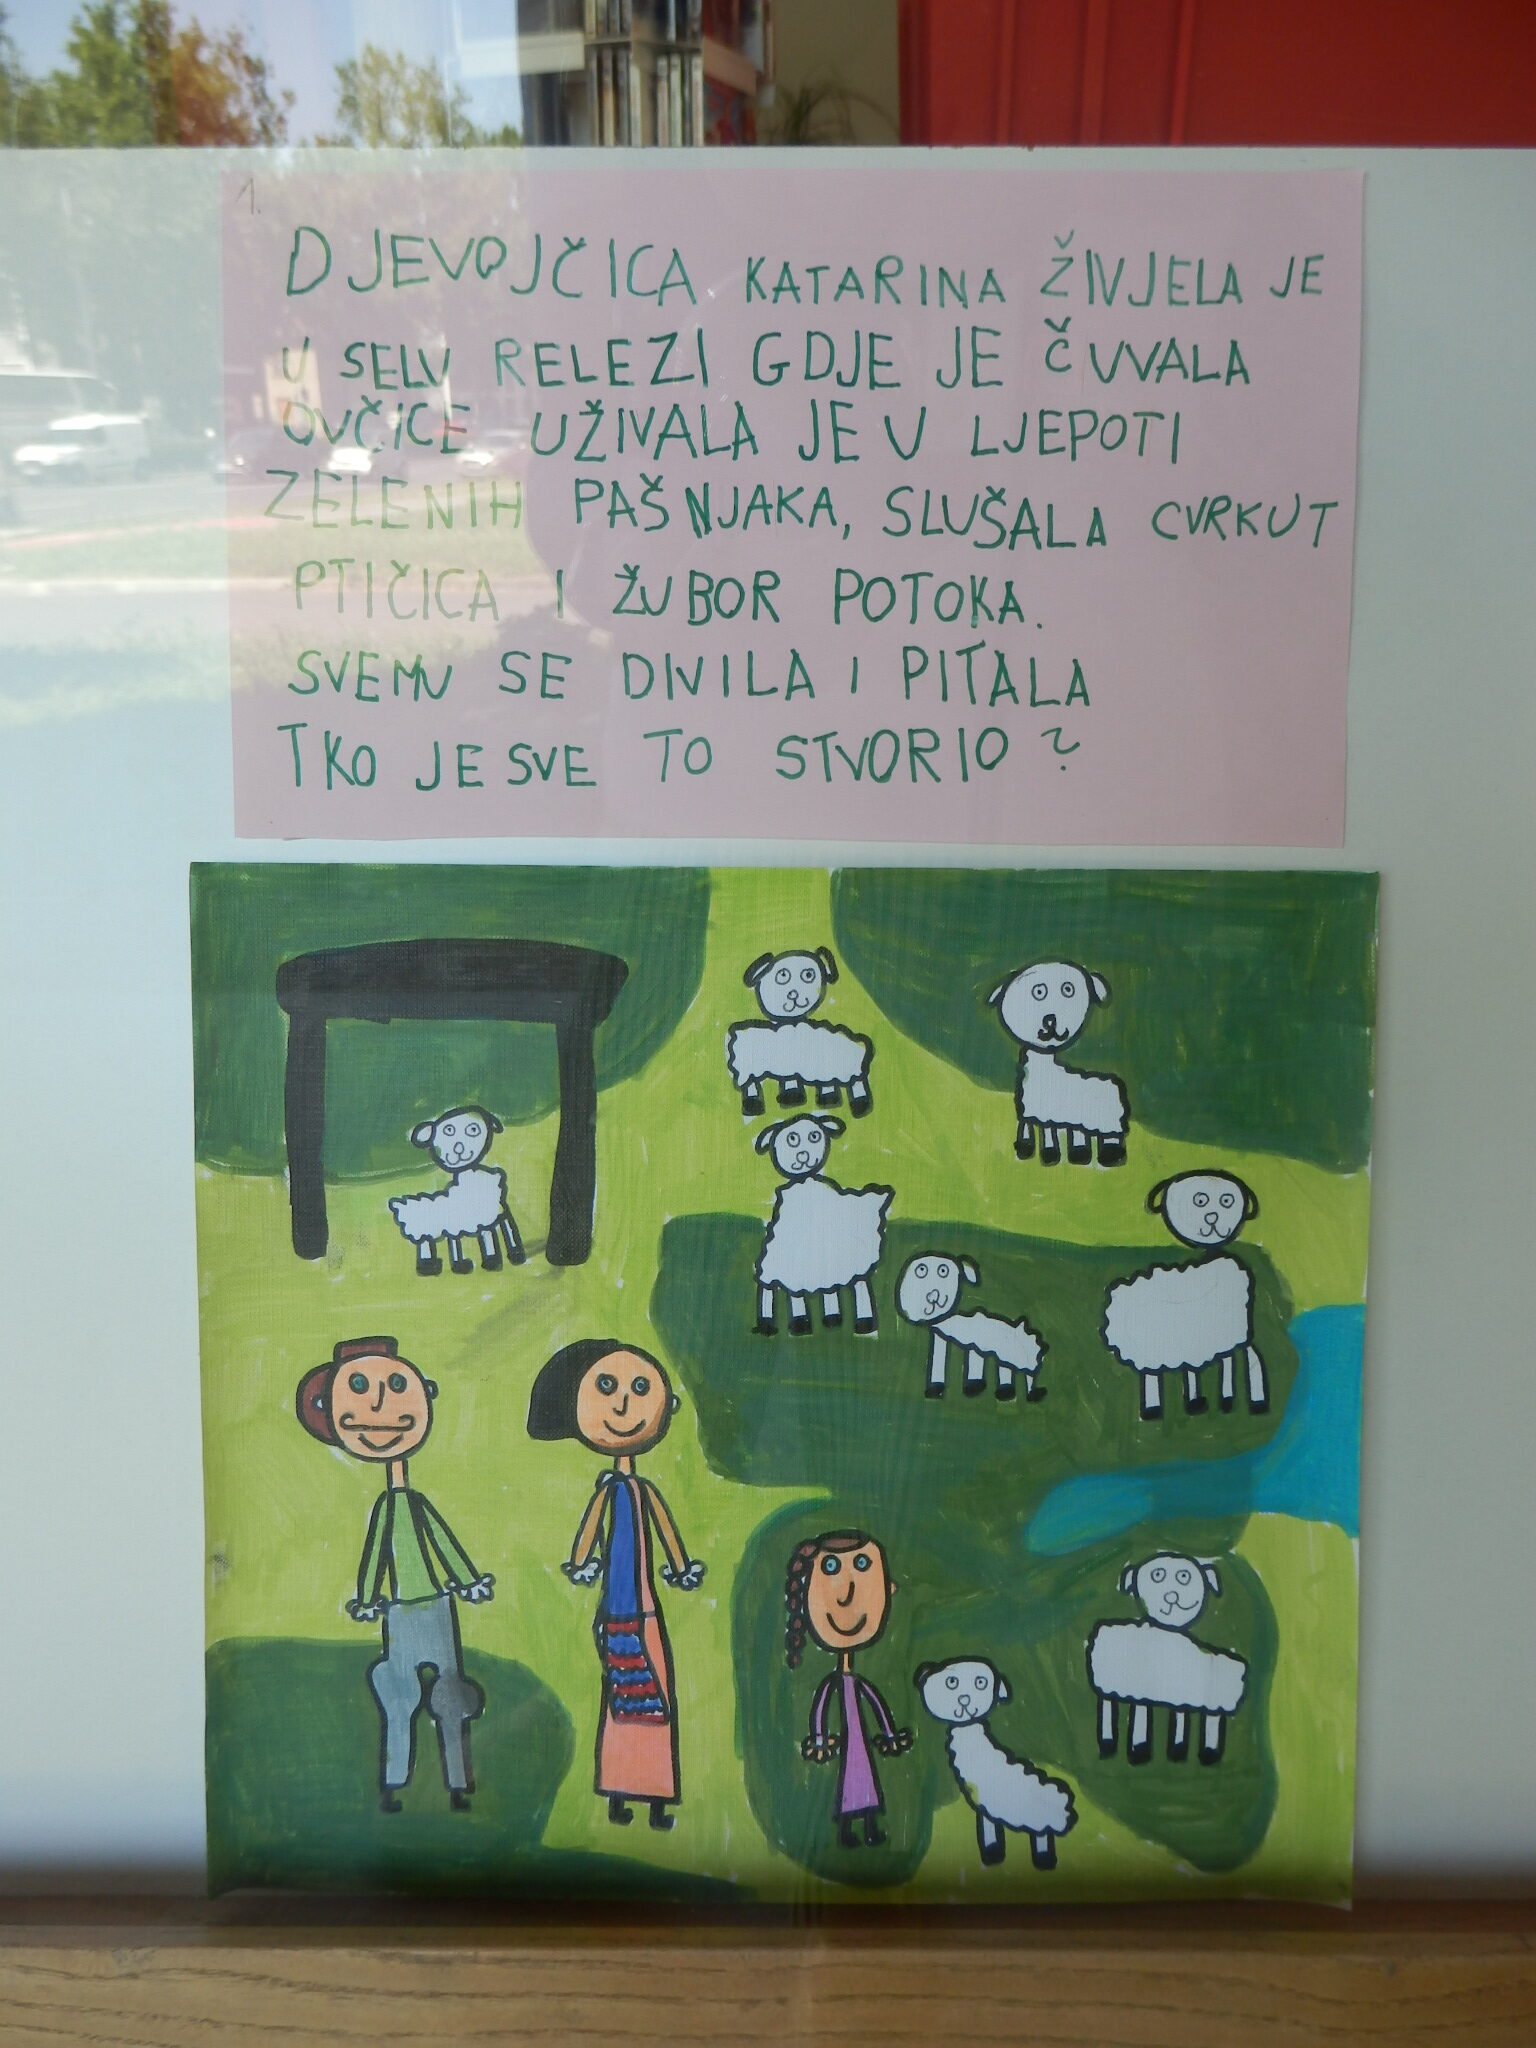 1.
DJEVOJČICA KATARINA ŽIVJELA JE
U SELU RELEZI GDJE JE ČUVALA
OVČICE UŽIVALA JE U LJEPOTI
ZELENIH PAŠNJAKA, SLUŠALA CVRKUT
PTIČICA I ŽUBOR POTOKA.
SVEMU SE DIVILA I PITALA
TKO JE SVE TO STVORIO?